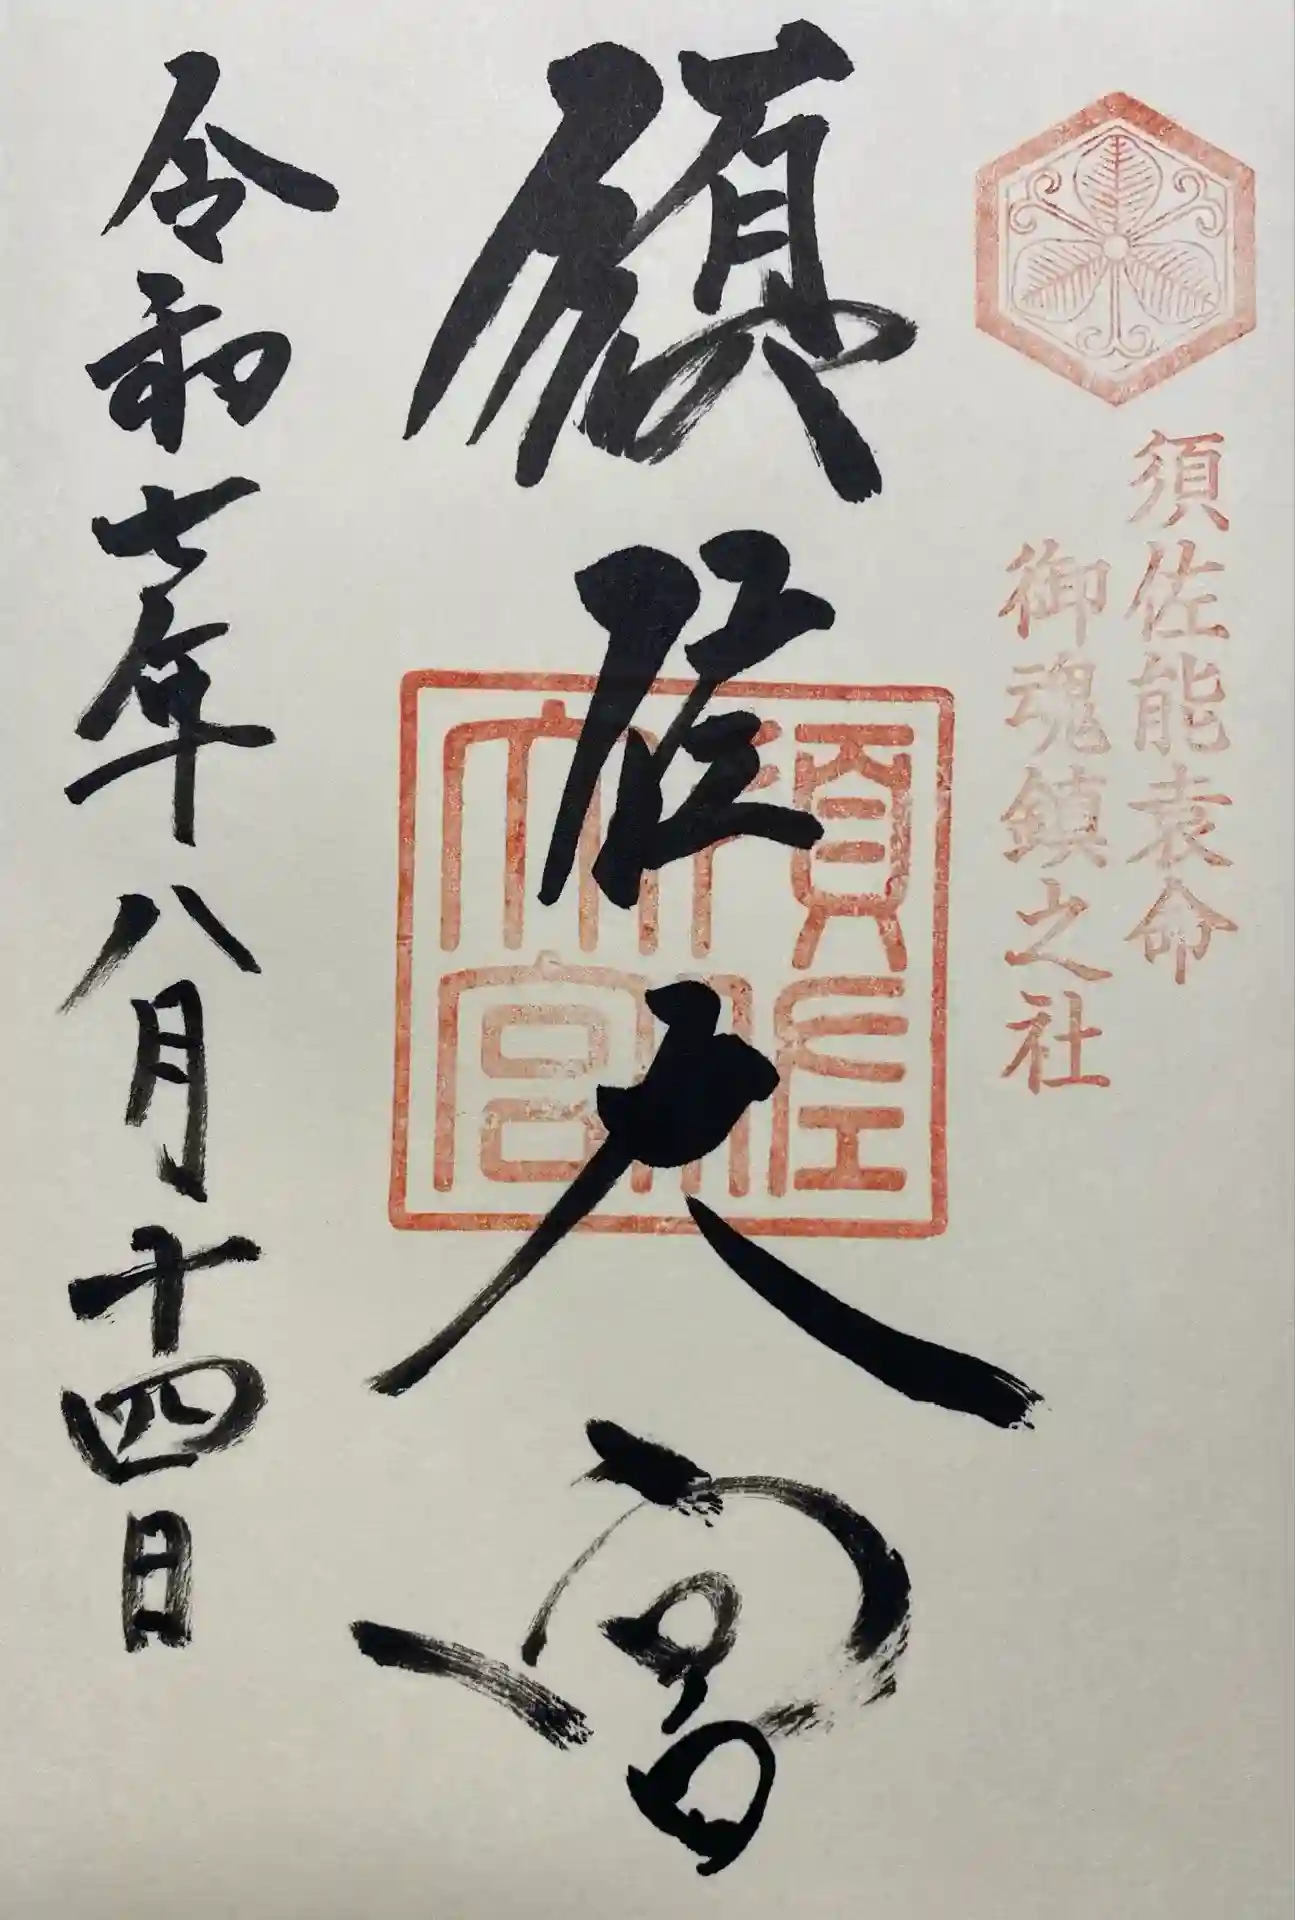 須佐能袁命
御魂鎮之社
須佐大宮
須佐
大宮
令和七年八月十四日